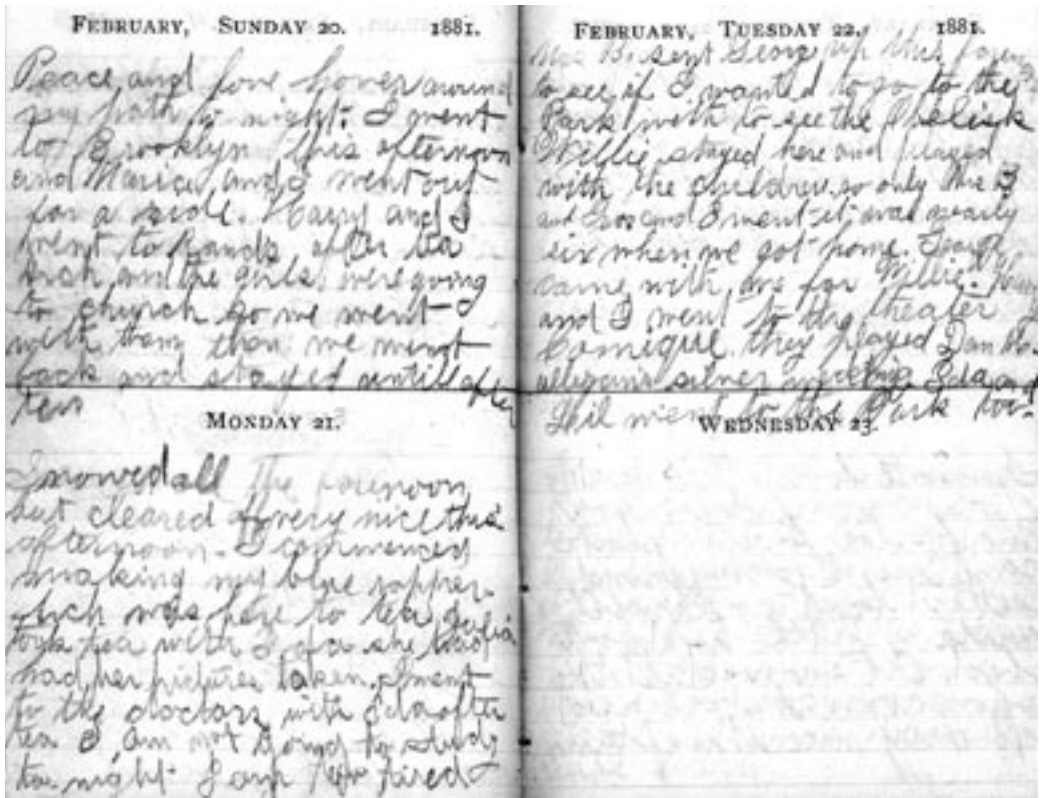 FEBRUARY, SUNDAY 20. 1881.
Peace and love hover around
my path to night. I went
to Brooklyn this afternoon
and and I went out
for a ride. Harry and I
went to Rands after tea
and the girls were going
to church so we went
with them than we went
back and stayed untill after
ten
MONDAY 21.
Snowed all the forenoon
but cleared off very nice this
afternoon. I commenced
making my blue
was here to tea Julia
took tea with Ida she had
had her pictures taken. I went
to the doctors with Ida after
tea I am not going to study
to night I am tired
FEBRUARY, TUESDAY 22. 1881.
Mrs B. sent Georg up this
to see if I wanted to go to the
Park with to see the Obelisk
Willie stayed here and played
with the children so only Mrs B
and and I went it was nearly
six when we got home. George
came with me for Willie.
and I went to the theater
Comique they played Dan
silver Ida and
Phil went to the Park too.
WEDNESDAY 23.